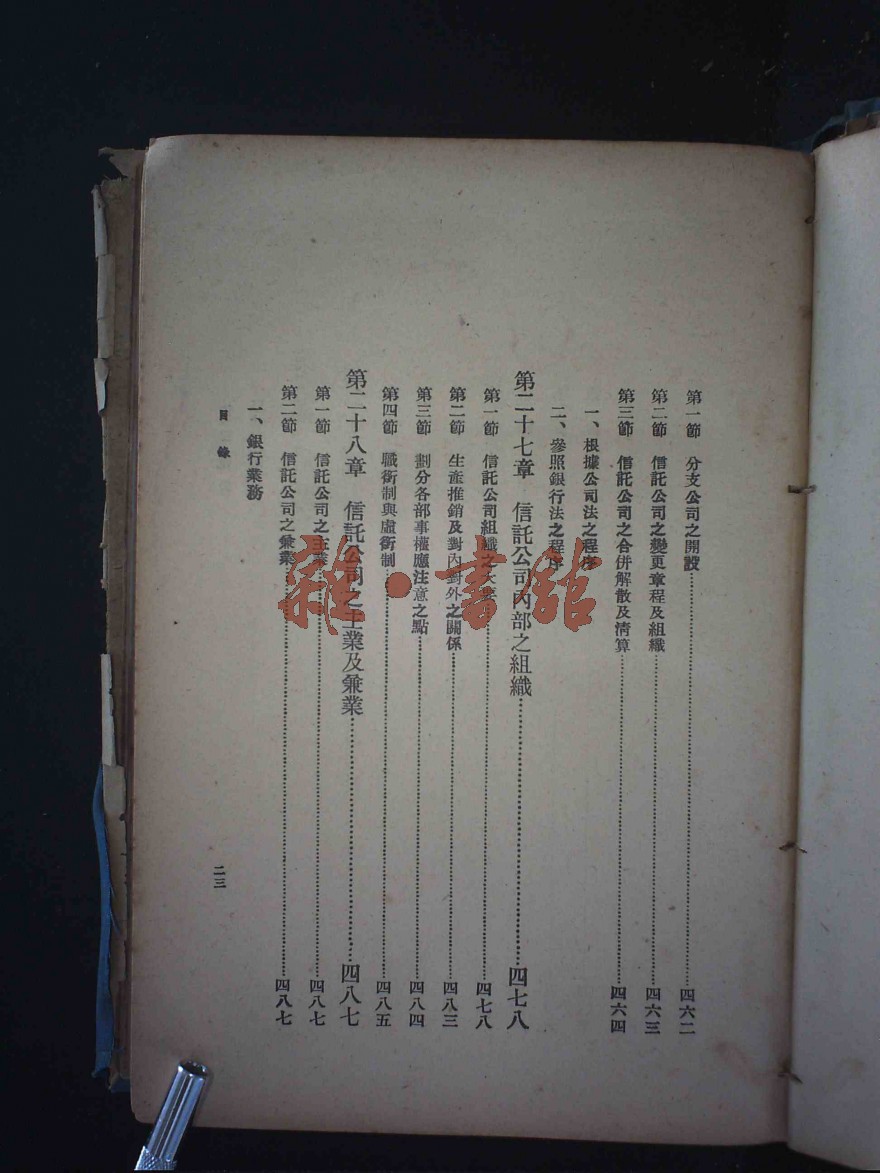 第一節 分支公司之開設……四六二
第二節 信託公司之變更章程及組織……四六三
第三節 信託公司之合併解散及清算……四六四
一、根據公司法之程序
二、參照銀行法之程序
第二十七章 信託公司內部之組織……四七八
第一節 信託公司組織之大要……四七八
第二節 生產推銷及對內對外之關係……四八三
第三節 劃分各部事權應注意之點……四八四
第四節 職銜制與虛銜制……四八五
第二十八章 信託公司之主業及兼業……四八七
第一節 信託公司之主業……四八七
第二節 信託公司之兼業……四八七
一、銀行業務
目錄
二三
雜·書館